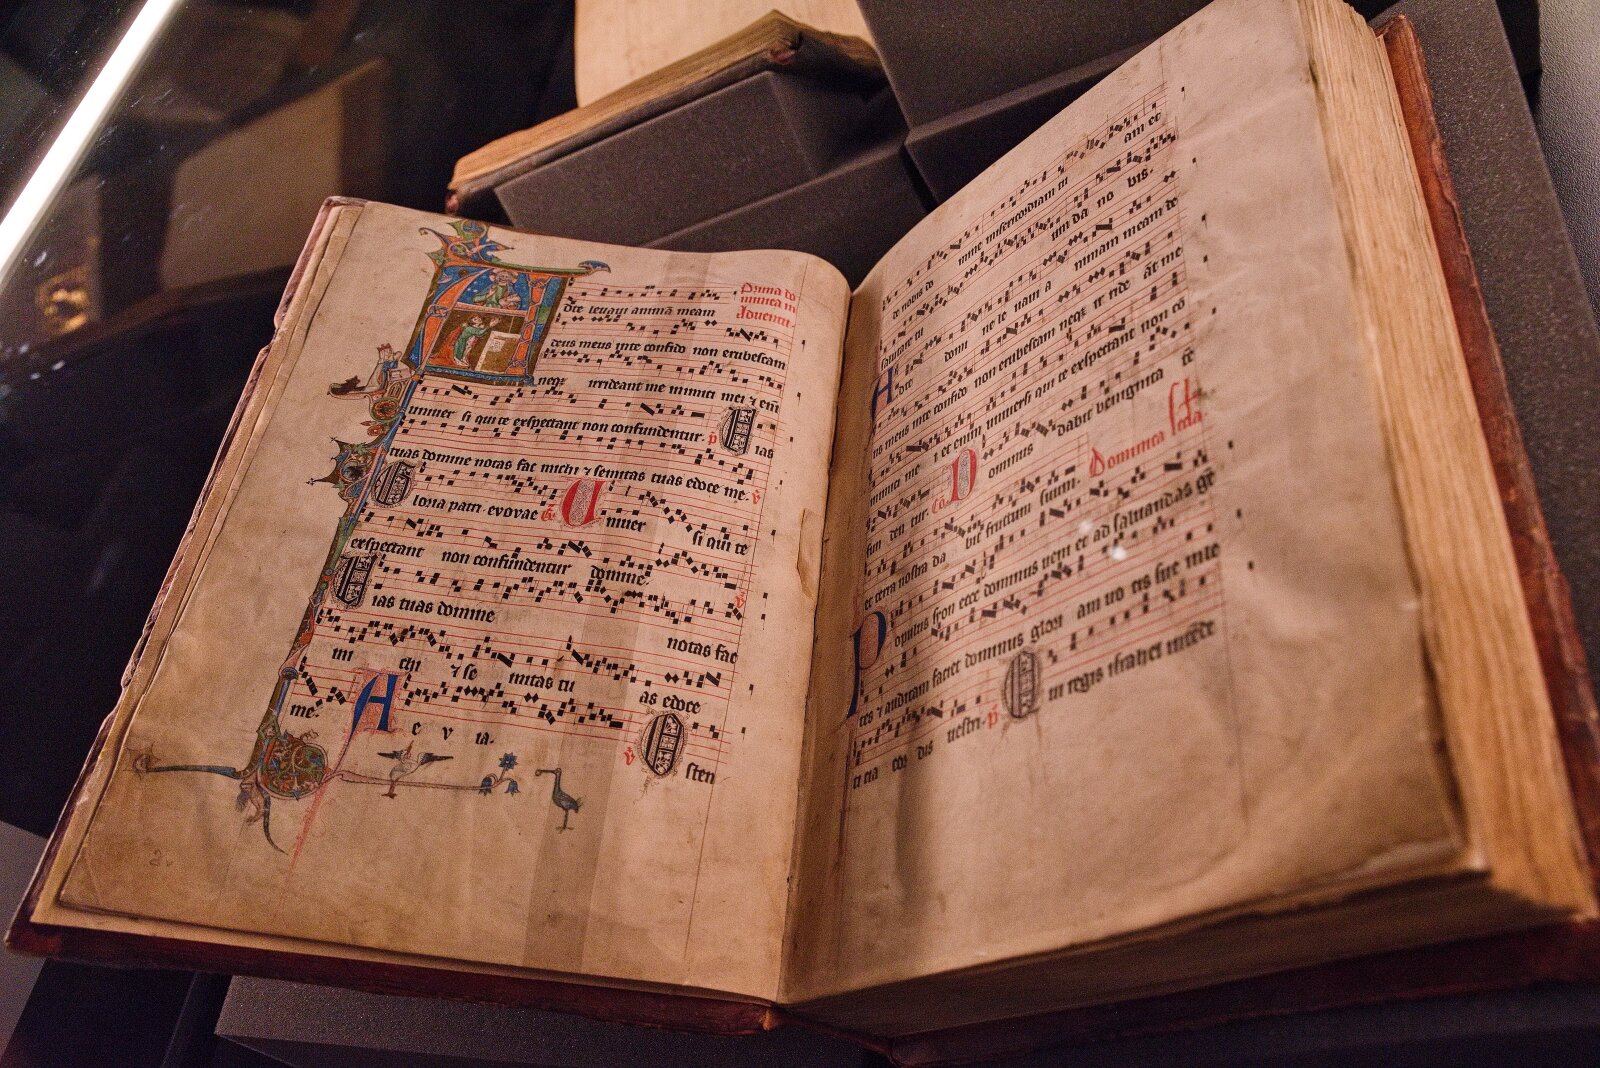 Prima do
minica in
Aduentu.
Ad te leuaui animā meam
deus meus in te confido non erubescam
neqȝ irrideant me inimici mei ⁊ eni
uniuersi qui te exspectant non confundentur. p̄ Uias
tuas domine notas fac michi ⁊ semitas tuas edoce me. v̄
Gloria patri. evovae Gr̄ Uniuersi qui te
exspectant non confundentur domine. v̄
Uias tuas domine notas fac
mi chi ⁊ se mitas tu as edoce
me. A e v ia. v̄ Osten
de nobis do mine misericordiam tu am et
salutare tu um da no vis.
Ad te domine le uaui a nimam meam de
us meus in te confido non erubescam neqȝ ir ride āt me
inimici me i et enim uniuersi qui te exspectant non cō
fun den tur. Cō. Dominus dabit benignita tē
et terra nostra da bit fructum suum. Dominica scda
Populus syon ecce dominus veni et ad saluandas gē
tes ⁊ auditam faciet dominus glori am uo cis sue in le
ti cia cor dis uestri. p̄ Qui regis israhel intēde